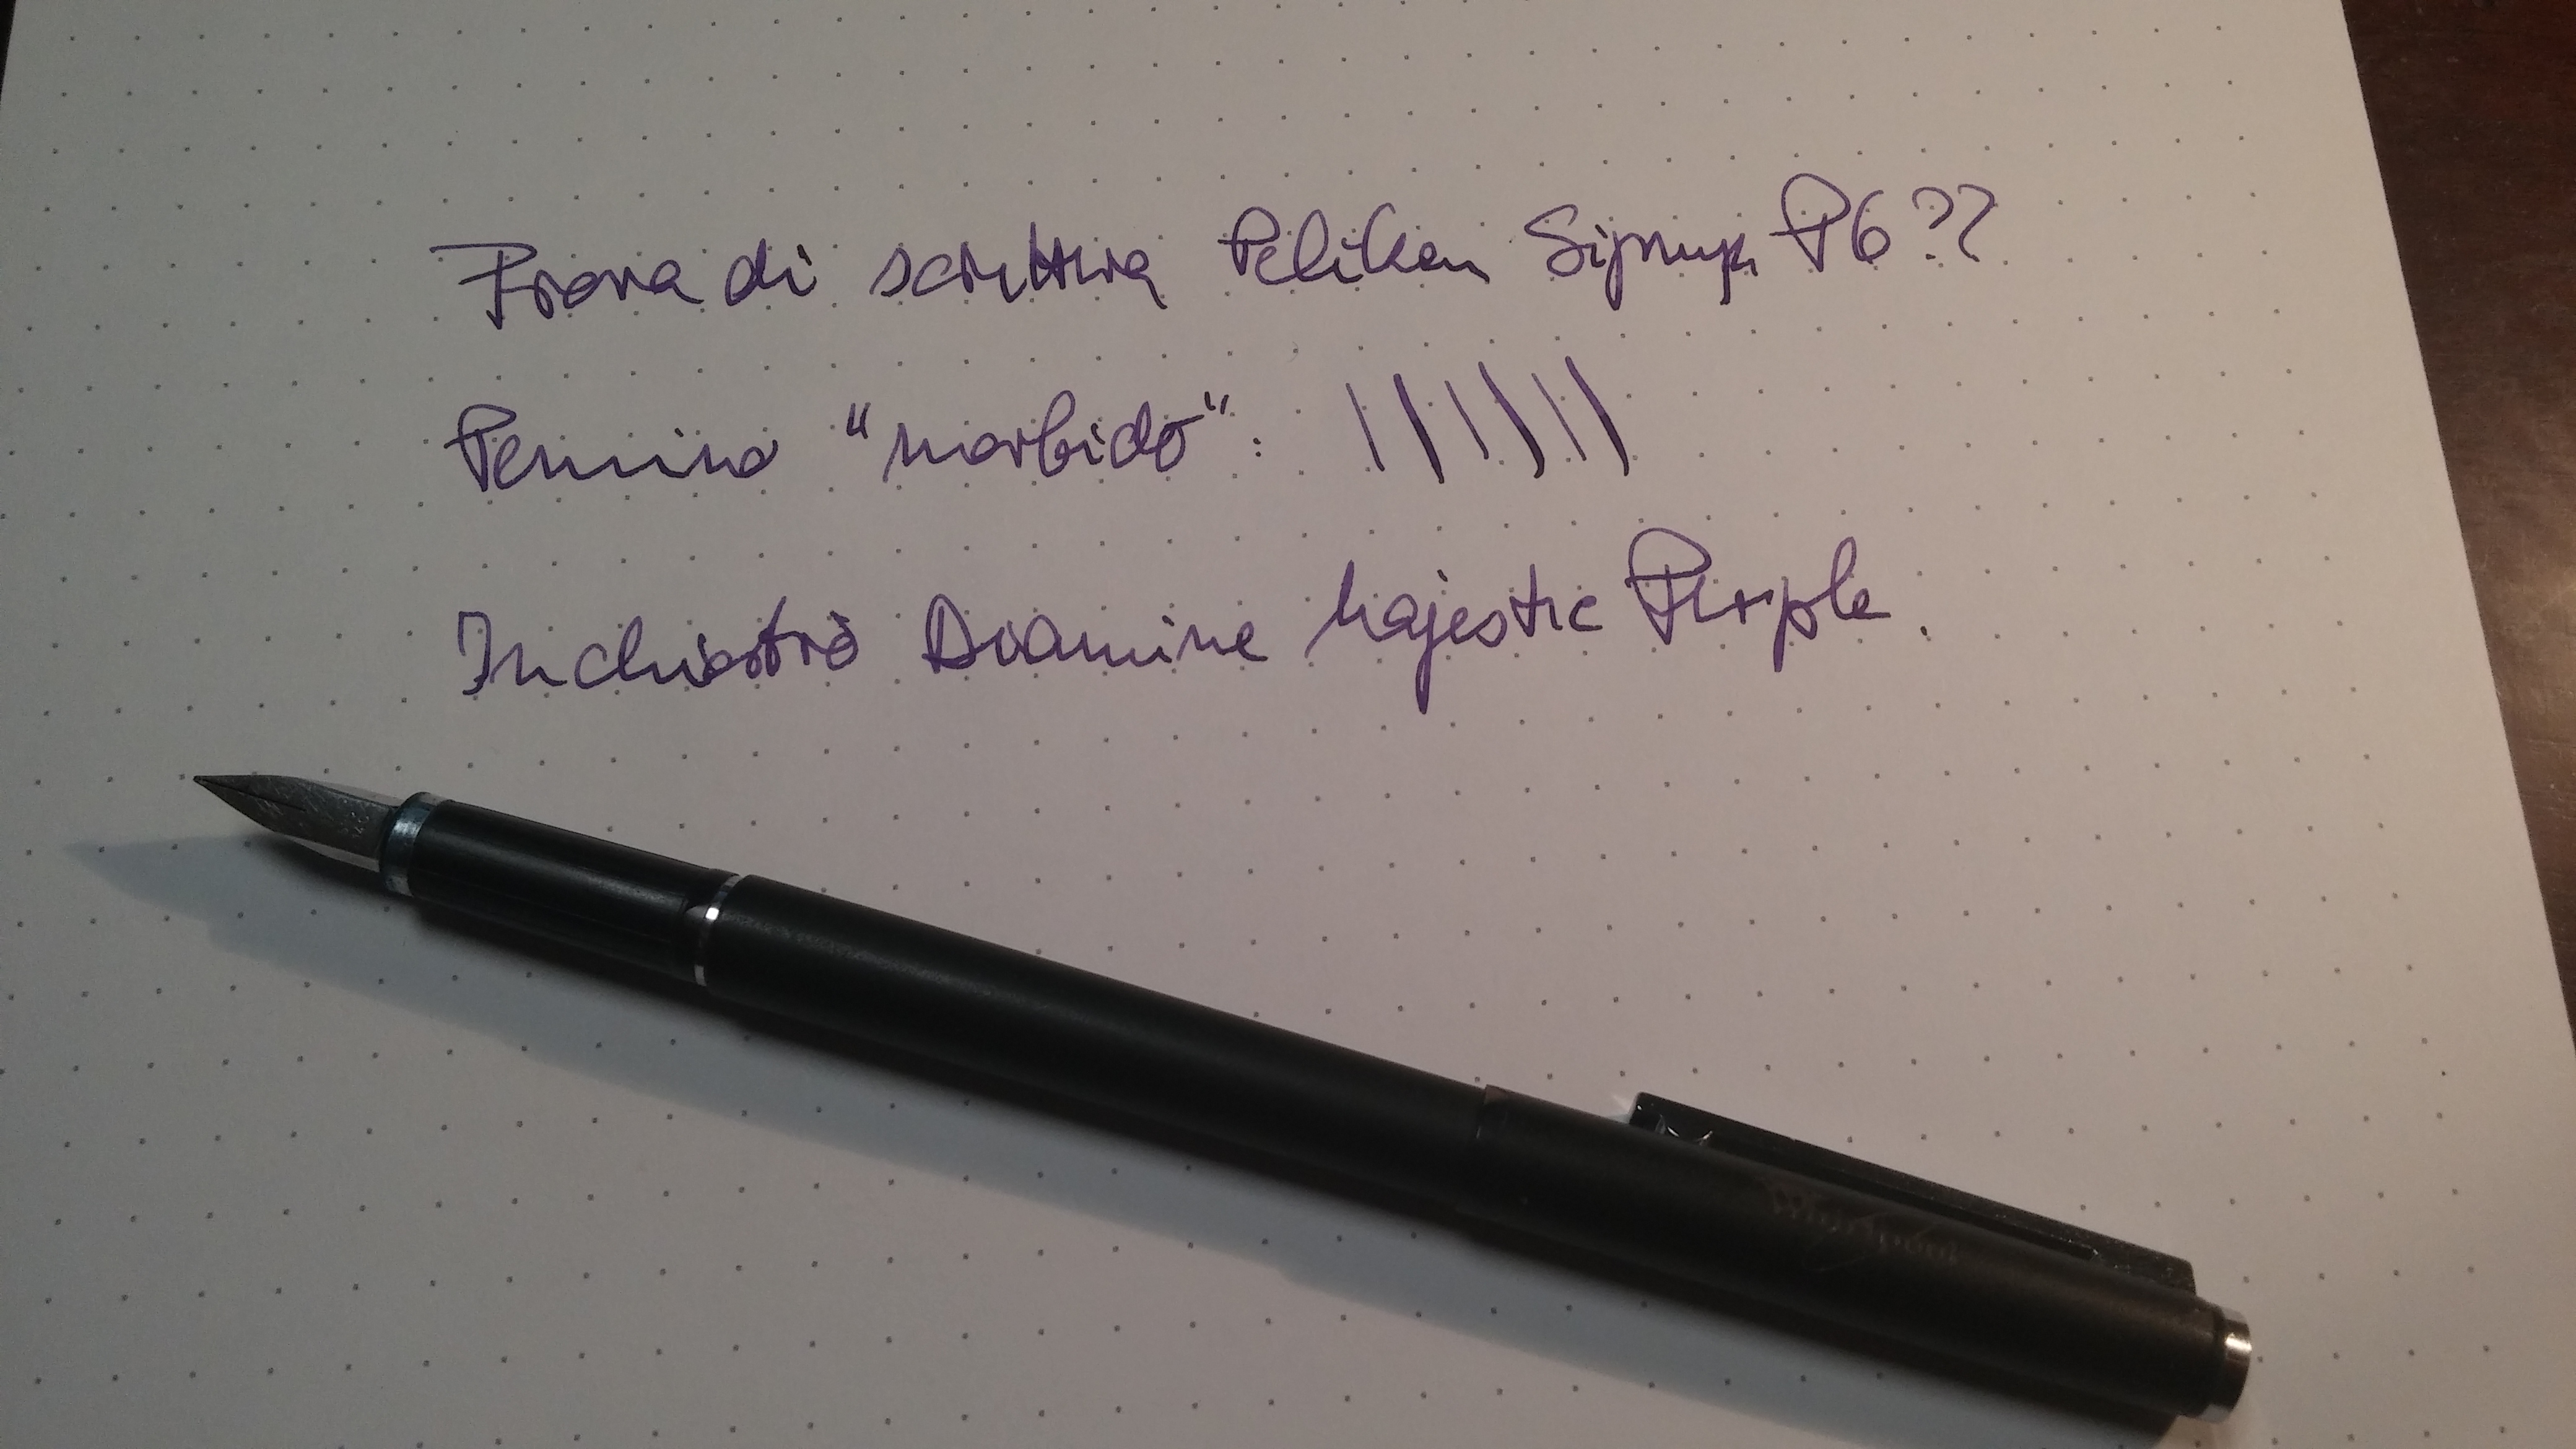 Prova di scrittura Pelikan Signum P6??
Pennino "morbido": 
Inchiostro Diamine Majestic Purple.